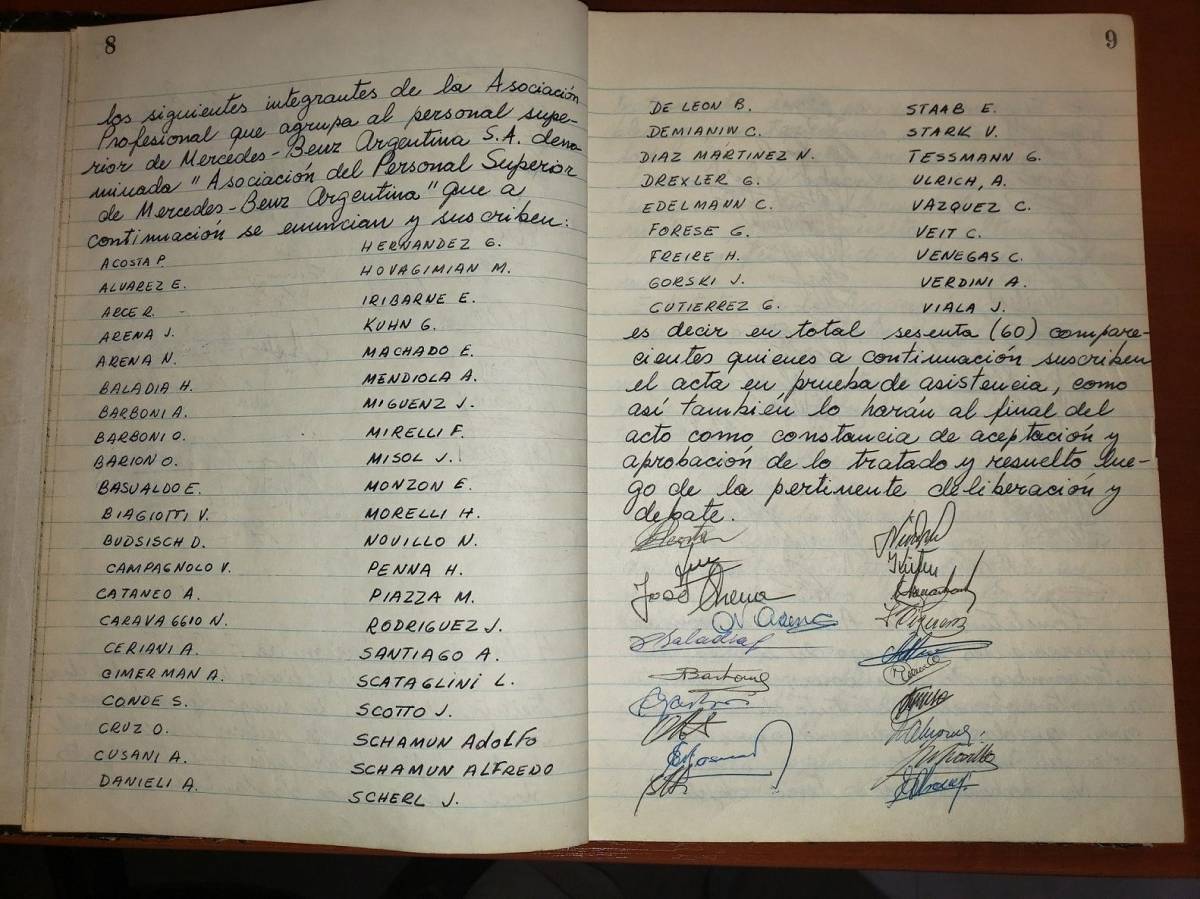 8
los siguientes integrantes de la Asociación
Profesional que agrupa al personal supe-
rior de Mercedes-Benz Argentina S.A. deno-
minada "Asociación del Personal Superior
de Mercedes-Benz Argentina" que a
continuación se enuncian y suscriben:
ACOSTA P.
ALVAREZ E.
ARCE R.
ARENA J.
ARENA N.
BALADIA H.
BARBONI A.
BARBONI O.
BARION O.
BASUALDO E.
BIAGIOTTI V.
BUDSISCH D.
CAMPAGNOLO V.
CATANEO A.
CARAVAGGIO N.
CERIANI A.
CIMERMAN A.
CONDE S.
CRUZ O.
CUSANI A.
DANIELI A.
HERNANDEZ G.
HOVAGIMIAN M.
IRIBARNE E.
KUHN G.
MACHADO E.
MENDIOLA A.
MIGUENZ J.
MIRELLI F.
MISOL J.
MONZON E.
MORELLI H.
NOVILLO N.
PENNA H.
PIAZZA M.
RODRIGUEZ J.
SANTIAGO A.
SCATAGLINI L.
SCOTTO J.
SCHAMUN ADOLFO
SCHAMUN ALFREDO
SCHERL J.
9
DE LEON B.
DEMIANIW C.
DIAZ MARTINEZ N.
DREXLER G.
EDELMANN C.
FORESE G.
FREIRE H.
GORSKI J.
GUTIERREZ G.
STAAB E.
STARK V.
TESSMANN G.
ULRICH, A.
VAZQUEZ C.
VEIT C.
VENEGAS C.
VERDINI A.
VIALA J.
es decir en total sesenta (60) compare-
cientes quienes a continuación suscriben
el acta en prueba de asistencia, como
así también lo harán al final del
acto como constancia de aceptación y
aprobación de lo tratado y resuelto lue-
go de la pertinente deliberación y
debate.
José Arena
N. Arena